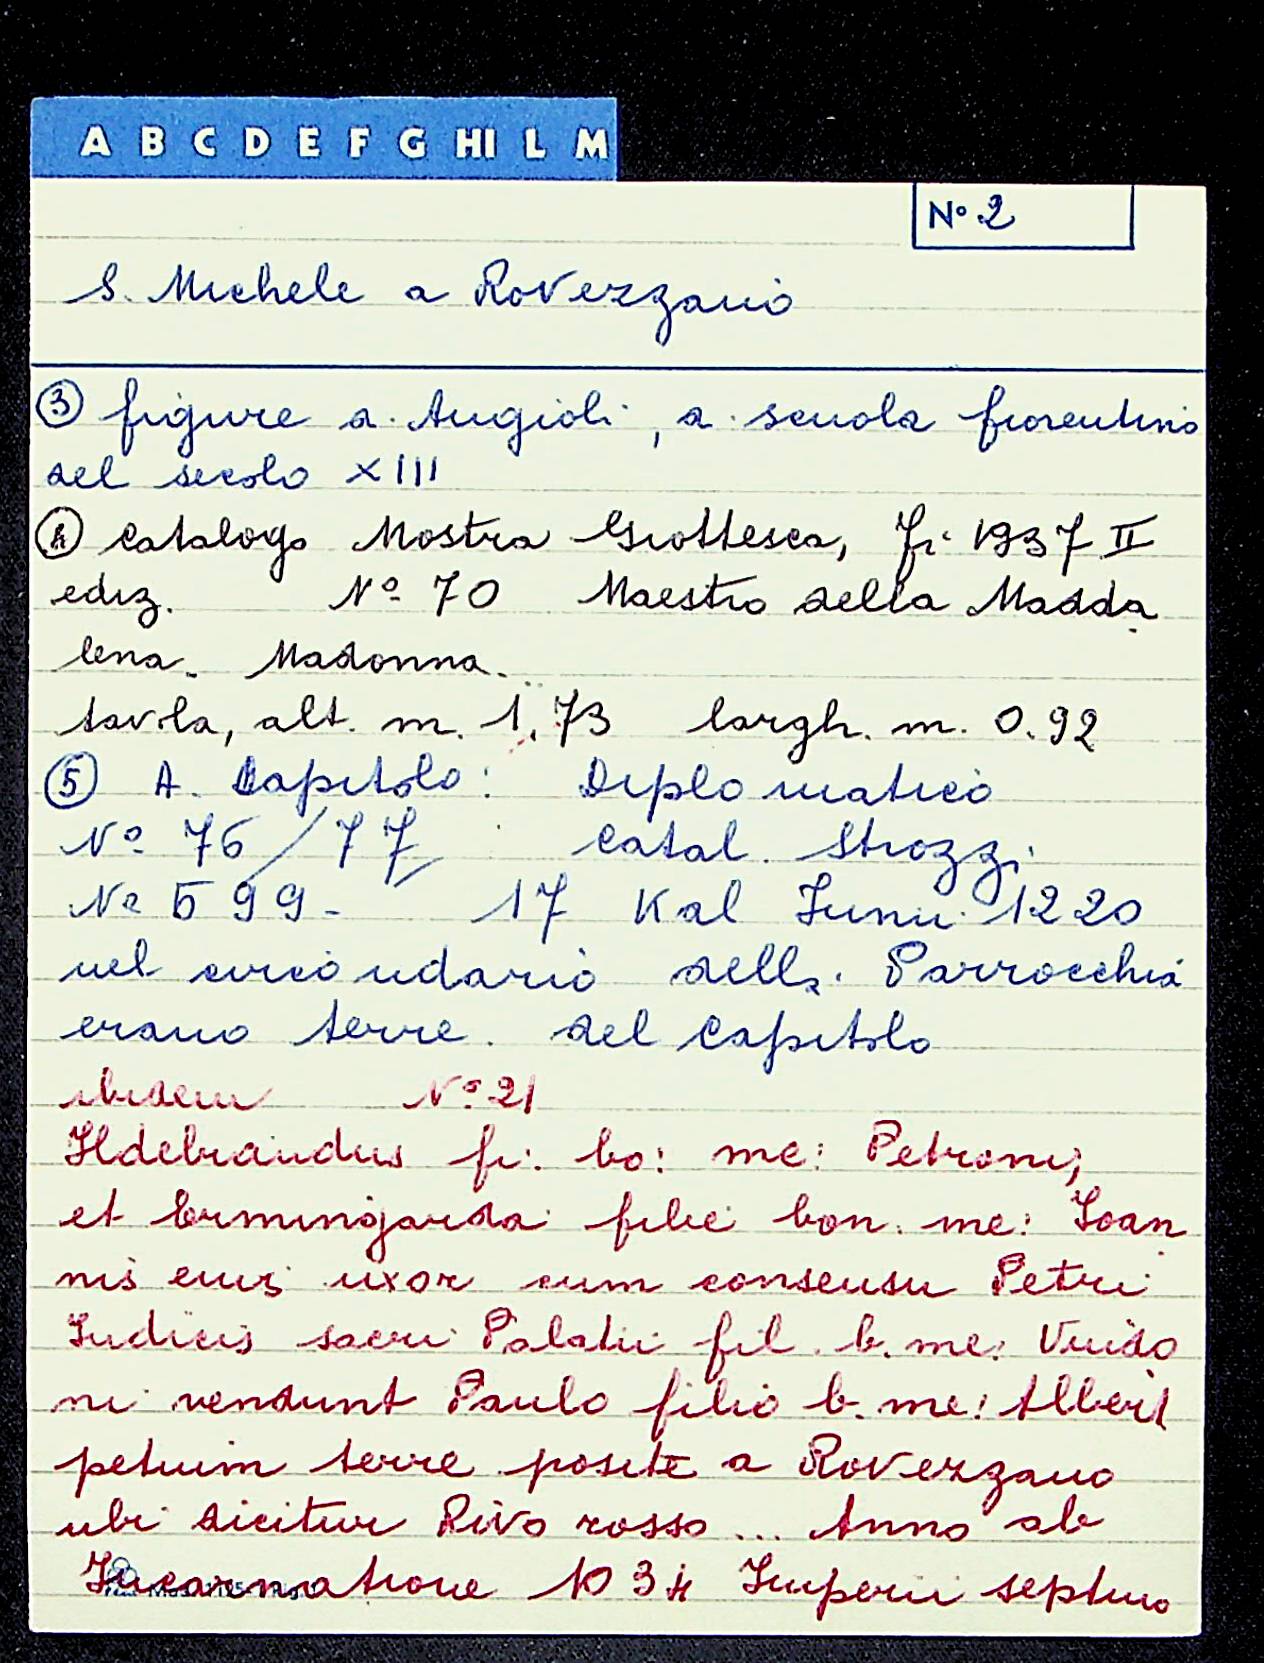 A B C D E F G HI L M
No 2
S. Michele a Rovezzano
③ figure a Angioli, a scuola fiorentino
del secolo XIII
④ Catalogo Mostra Giottesca, Fi 1937 II
ediz. No 70 Maestro della Madda
lena. Madonna.
tavola, alt. m. 1.73 largh. m. 0.92
⑤ A. Capitolo: Diplomatico
No 76/77 Catal. Strozzi
No 599- 17 Kal Junii 1220
nel circondario della Parrocchia
erano terre del Capitolo
ibidem No 21
Ildebrandus fi: bo: me: Petroni,
et Ermingarda filie bon. me: Ioan
nis eius uxor cum consensu Petri
Iudicis sacri Palatii fil. b. me: Vuido
ni vendunt Paulo filio b. me: Alberti
petium terre posite a Rovezzano
ubi dicitur Rivo rosso... Anno ab
Incarnatione 1034 Imperii septimo